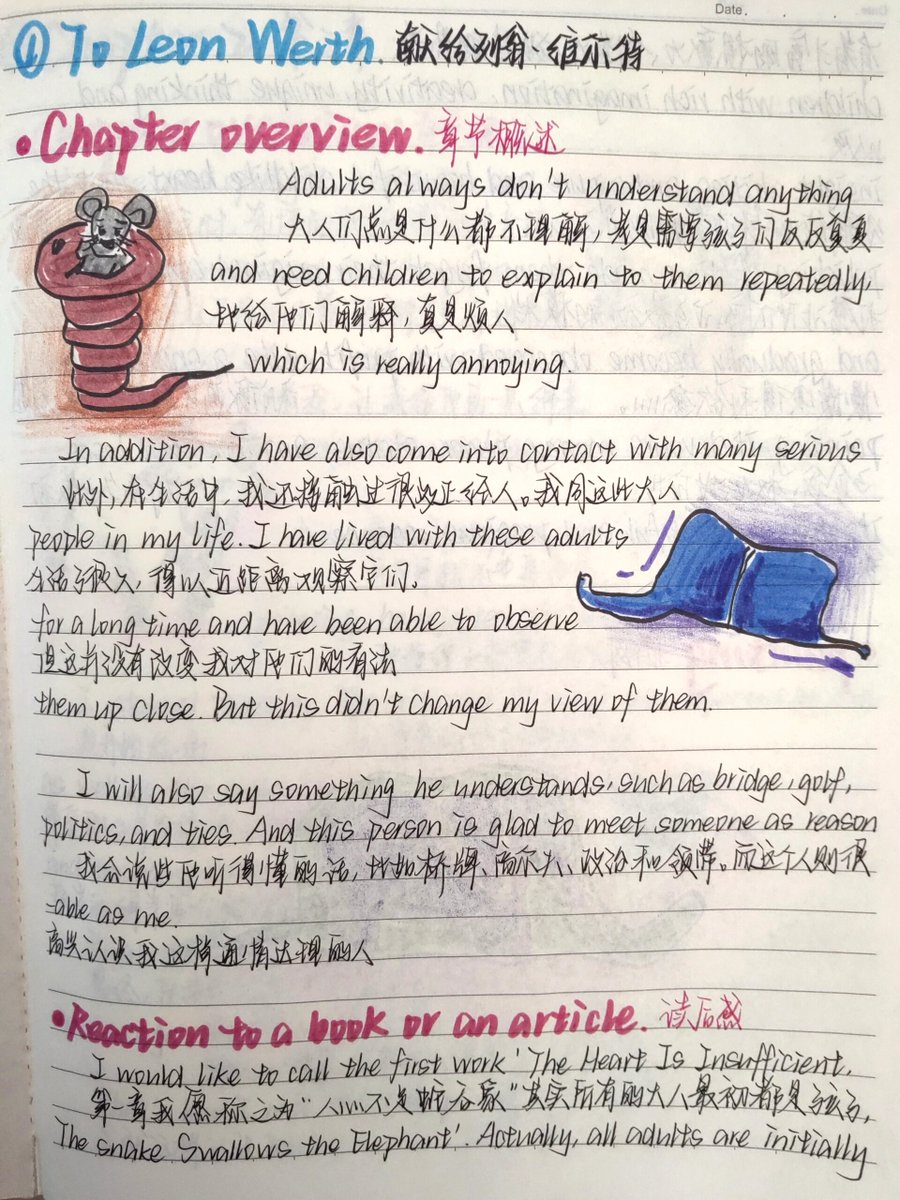 Date.
① To Leon Werth. 献给列翁·维尔特
•Chapter overview. 章节概述
Adults always don't understand anything
大人们总是什么都不理解，老是需要孩子们反反复复
and need children to explain to them repeatedly,
地给他们解释，真是烦人
which is really annoying.
In addition, I have also come into contact with many serious
此外，在生活中，我还接触过很多正经人。我同这些大人
people in my life. I have lived with these adults
生活了很久，得以近距离观察它们。
for a long time and have been able to observe
但这并没有改变我对他们的看法
them up close. But this didn't change my view of them.
I will also say something he understands, such as bridge, golf,
politics, and ties. And this person is glad to meet someone as reason
我会说些他听得懂的话，比如桥牌、高尔夫、政治和领带。而这个人则很
-able as me.
高兴认识我这样通情达理的人
•Reaction to a book or an article. 读后感
I would like to call the first work 'The Heart Is Insufficient,
第一章我愿称之为"人心不足蛇吞象"其实所有的大人最初都是孩子，
The snake Swallows the Elephant'. Actually, all adults are initially